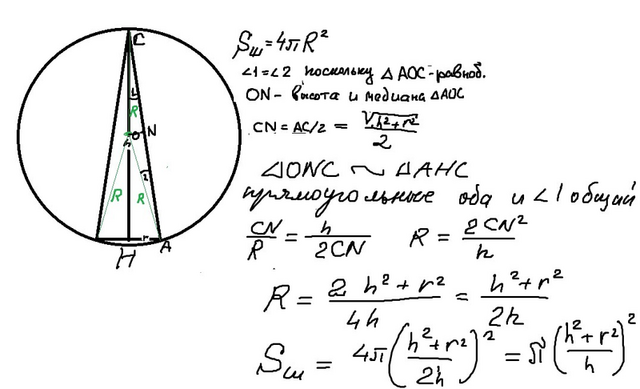 C
1
R
O N
h
2
R R
r A
H
Sш = 4πR²
∠1=∠2 поскольку △AOC-равноб.
ON - высота и медиана △AOC
CN = AC/2 = √(h²+r²)/2
△ONC ~ △AHC
прямоугольные оба и ∠1 общий
CN/R = h/2CN R = 2CN²/h
R = 2 h²+r²/4h = h²+r²/2h
Sш = 4π(h²+r²/2h)² = π(h²+r²/h)²